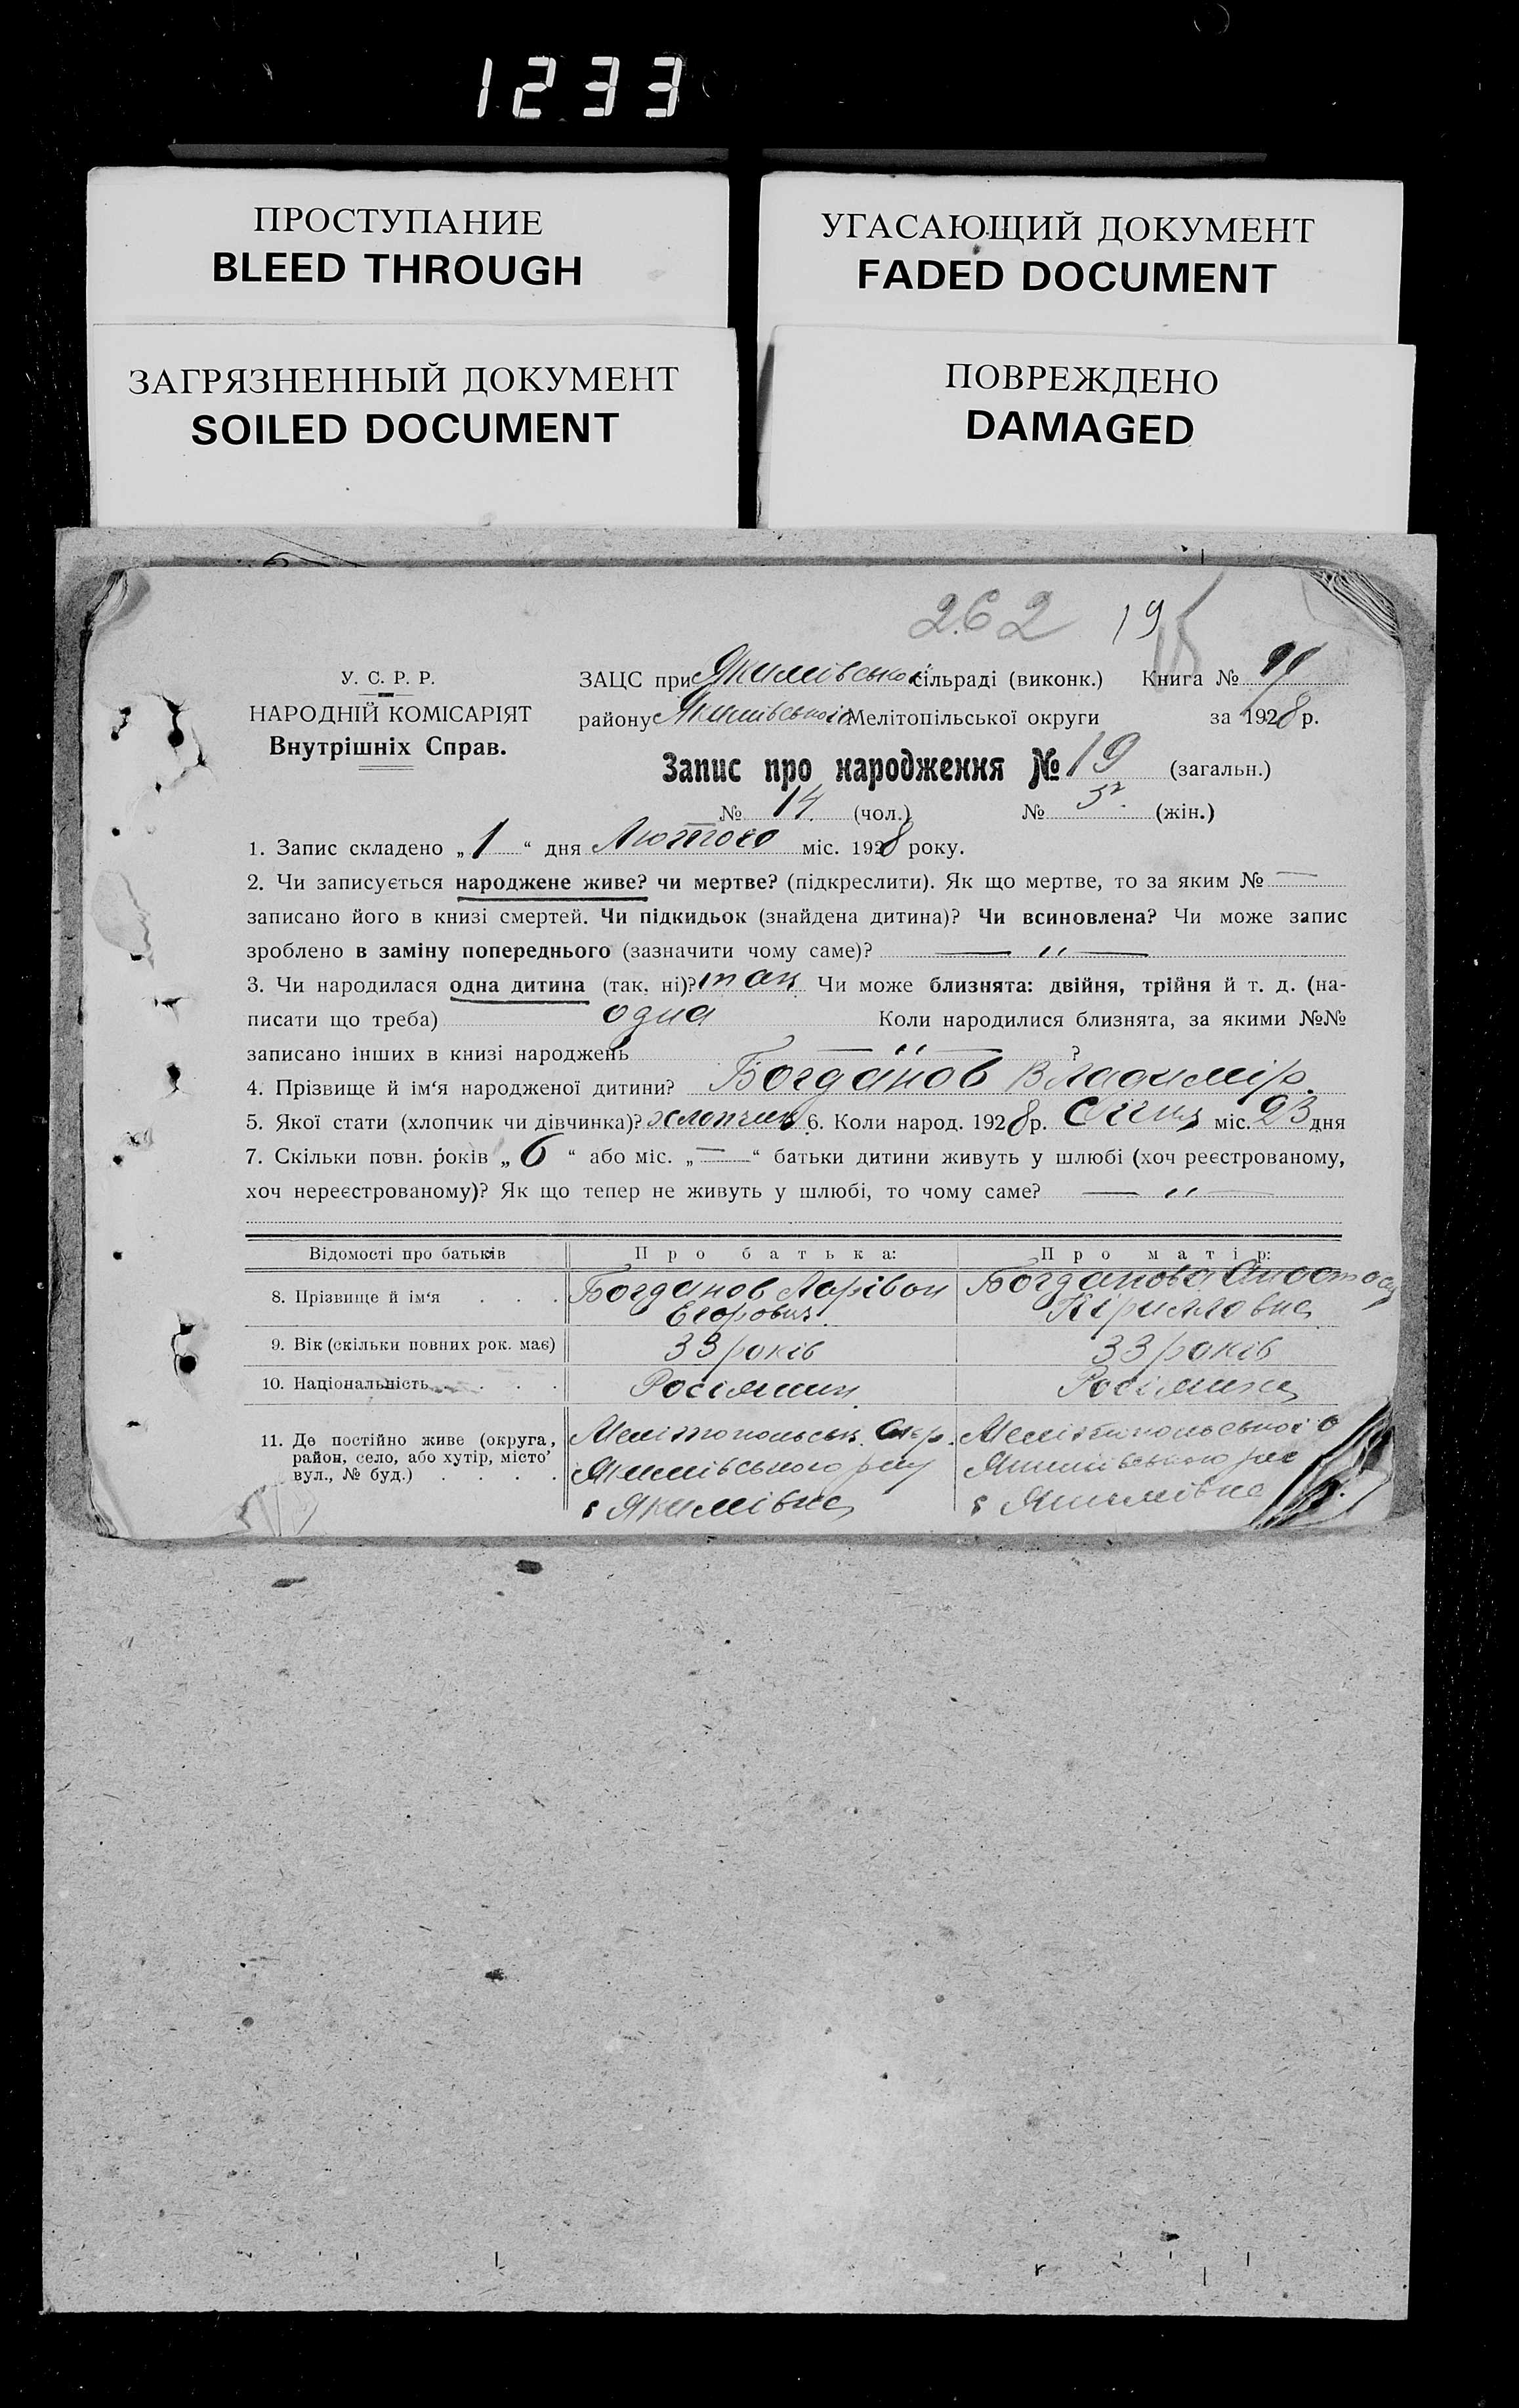 1233
ПРОСТУПАНИЕ
BLEED THROUGH
УГАСАЮЩИЙ ДОКУМЕНТ
FADED DOCUMENT
ЗАГРЯЗНЕННЫЙ ДОКУМЕНТ
SOILED DOCUMENT
ПОВРЕЖДЕНО
DAMAGED
262 19
У. С. Р. Р.
НАРОДНІЙ КОМІСАРІЯТ
Внутрішніх Справ.
ЗАЦС при Якимівської сільраді (виконк.) Книга №
району Якимівського Мелітопільської округи за 1928 р.
Запис про народження № 19 (загальн.)
№ 14 (чол.) № 5 (жін.)
1. Запис складено „1“ дня Лютого міс. 1928 року.
2. Чи записується народжене живе? чи мертве? (підкреслити). Як що мертве, то за яким № —
записано його в книзі смертей. Чи підкидьок (знайдена дитина)? Чи всиновлена? Чи може запис
зроблено в заміну попереднього (зазначити чому саме)? — “ —
3. Чи народилася одна дитина (так, ні)? так Чи може близнята: двійня, трійня й т. д. (на-
писати що треба) одна Коли народилися близнята, за якими №№
записано інших в книзі народжень — “ — ?
4. Прізвище й ім‘я народженої дитини? Богданов Владимір.
5. Якої стати (хлопчик чи дівчинка)? хлопчик 6. Коли народ. 1928 р. Січня міс. 23 дня
7. Скільки повн. років „6“ або міс. „—“ батьки дитини живуть у шлюбі (хоч реєстрованому,
хоч нереєстрованому)? Як що тепер не живуть у шлюбі, то чому саме? — “ —
Відомості про батьків
Про батька:
Про матір:
8. Прізвище й ім‘я . . .
Богданов Ларівон
Егорович
Богданова
Кірилловна
9. Вік (скільки повних рок. має)
33 років
33 років
10. Національність . . .
Росіянин
Росіянка
11. Де постійно живе (округа,
район, село, або хутір, місто
вул., № буд.) . . . .
Мелітопольськ. Окр.
Якимівського р-ну
с Якимівка
Мелітопольської о
Якимівського
с Якимівка